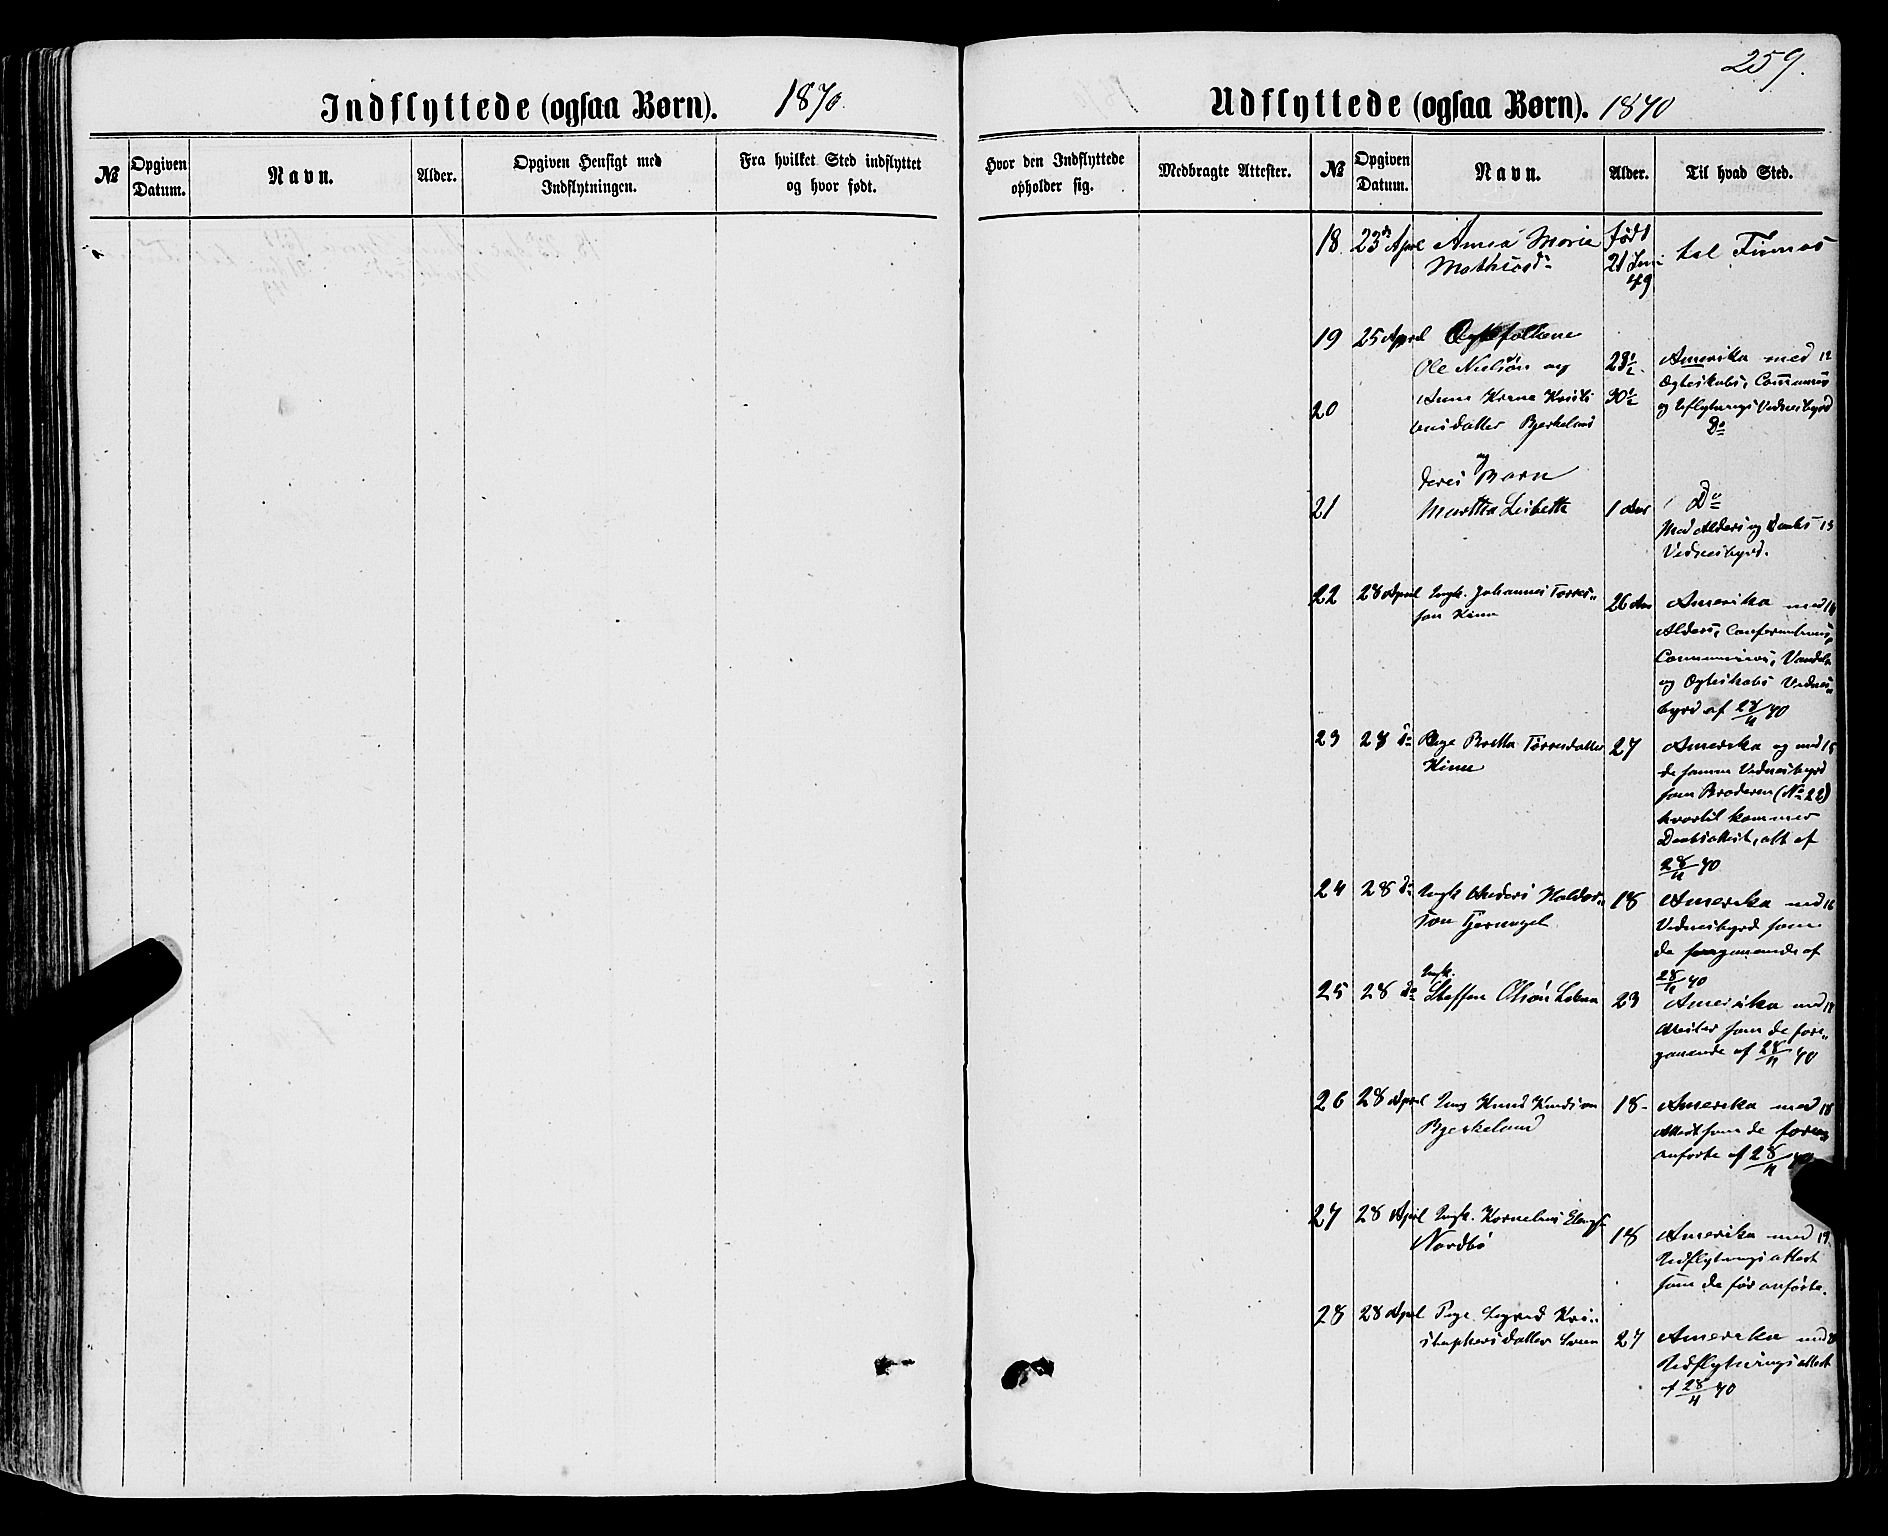 259.
Indflyttede (ogsaa Børn). 1870.
№
Opgiven Datum.
Navn.
Alder.
Opgiven Hensigt med Indflytningen.
Fra hvilket Sted indflyttet og hvor født.
Udflyttede (ogsaa Børn). 1870
Hvor den Indflyttede opholder sig.
Medbragte Attester.
№
Opgiven Datum.
Navn.
Alder.
Til hvad Sted.
18 23de April Anna Marie Født
Mathiasd- 21 Juni
49
til Finnaas
19 25 April Ægtefolkene
Ole Nielsön og 29½ Amerika med 12
Ægteskabs, Communions
20 Anna Kristi 30½ og Udflytnings Vidnesbyrd
ansdatter Bjerkelund Do
deres Barn
21 Martha Lisbeth 1 Aar Do
Med Alders og Daabs 13
Vidnesbyrd.
22 28 April Ungk. Johannes Torres- 26 Aar Amerika med 14
son Kinn Alders, Confirmations,
Communions, Vandels
og Ægteskabs Vidnes-
byrd af 28/4 70
23 28 do Pige Britta Torresdatter 27 Amerika og med 15
Kinn de samme Vidnesbyrd
som Broderen (No 22)
hvortil kommer
Daabsattest, alt af
28/4 70
24 28 do Ungk Anders Haldor- 18 Amerika med 16
son Tjernagel Vidnesbyrd som
de foregaaende af
28/4 70
Ungk.
25 28 do Steffen Olsön 23 Amerika med 17
Attester som de fore-
gaaende af 28/4 70
26 28 April Ung Knud Knudson 18 Amerika med 18
Bjerkeland Attest som de foran
anførte af 28/4 70
27 28 April Ungk. Kornelius
Nordbö 18 Amerika med 19.
Udflytningsattest
som de før anførte.
28 28 April Pige Sigrid Kri-
stophersdatter 27 Amerika med
Udflytningsattest
af 28/4 70